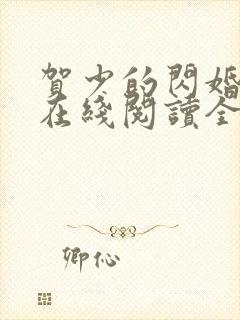 賀少的閃婚
在綫閱讀全
卿伈